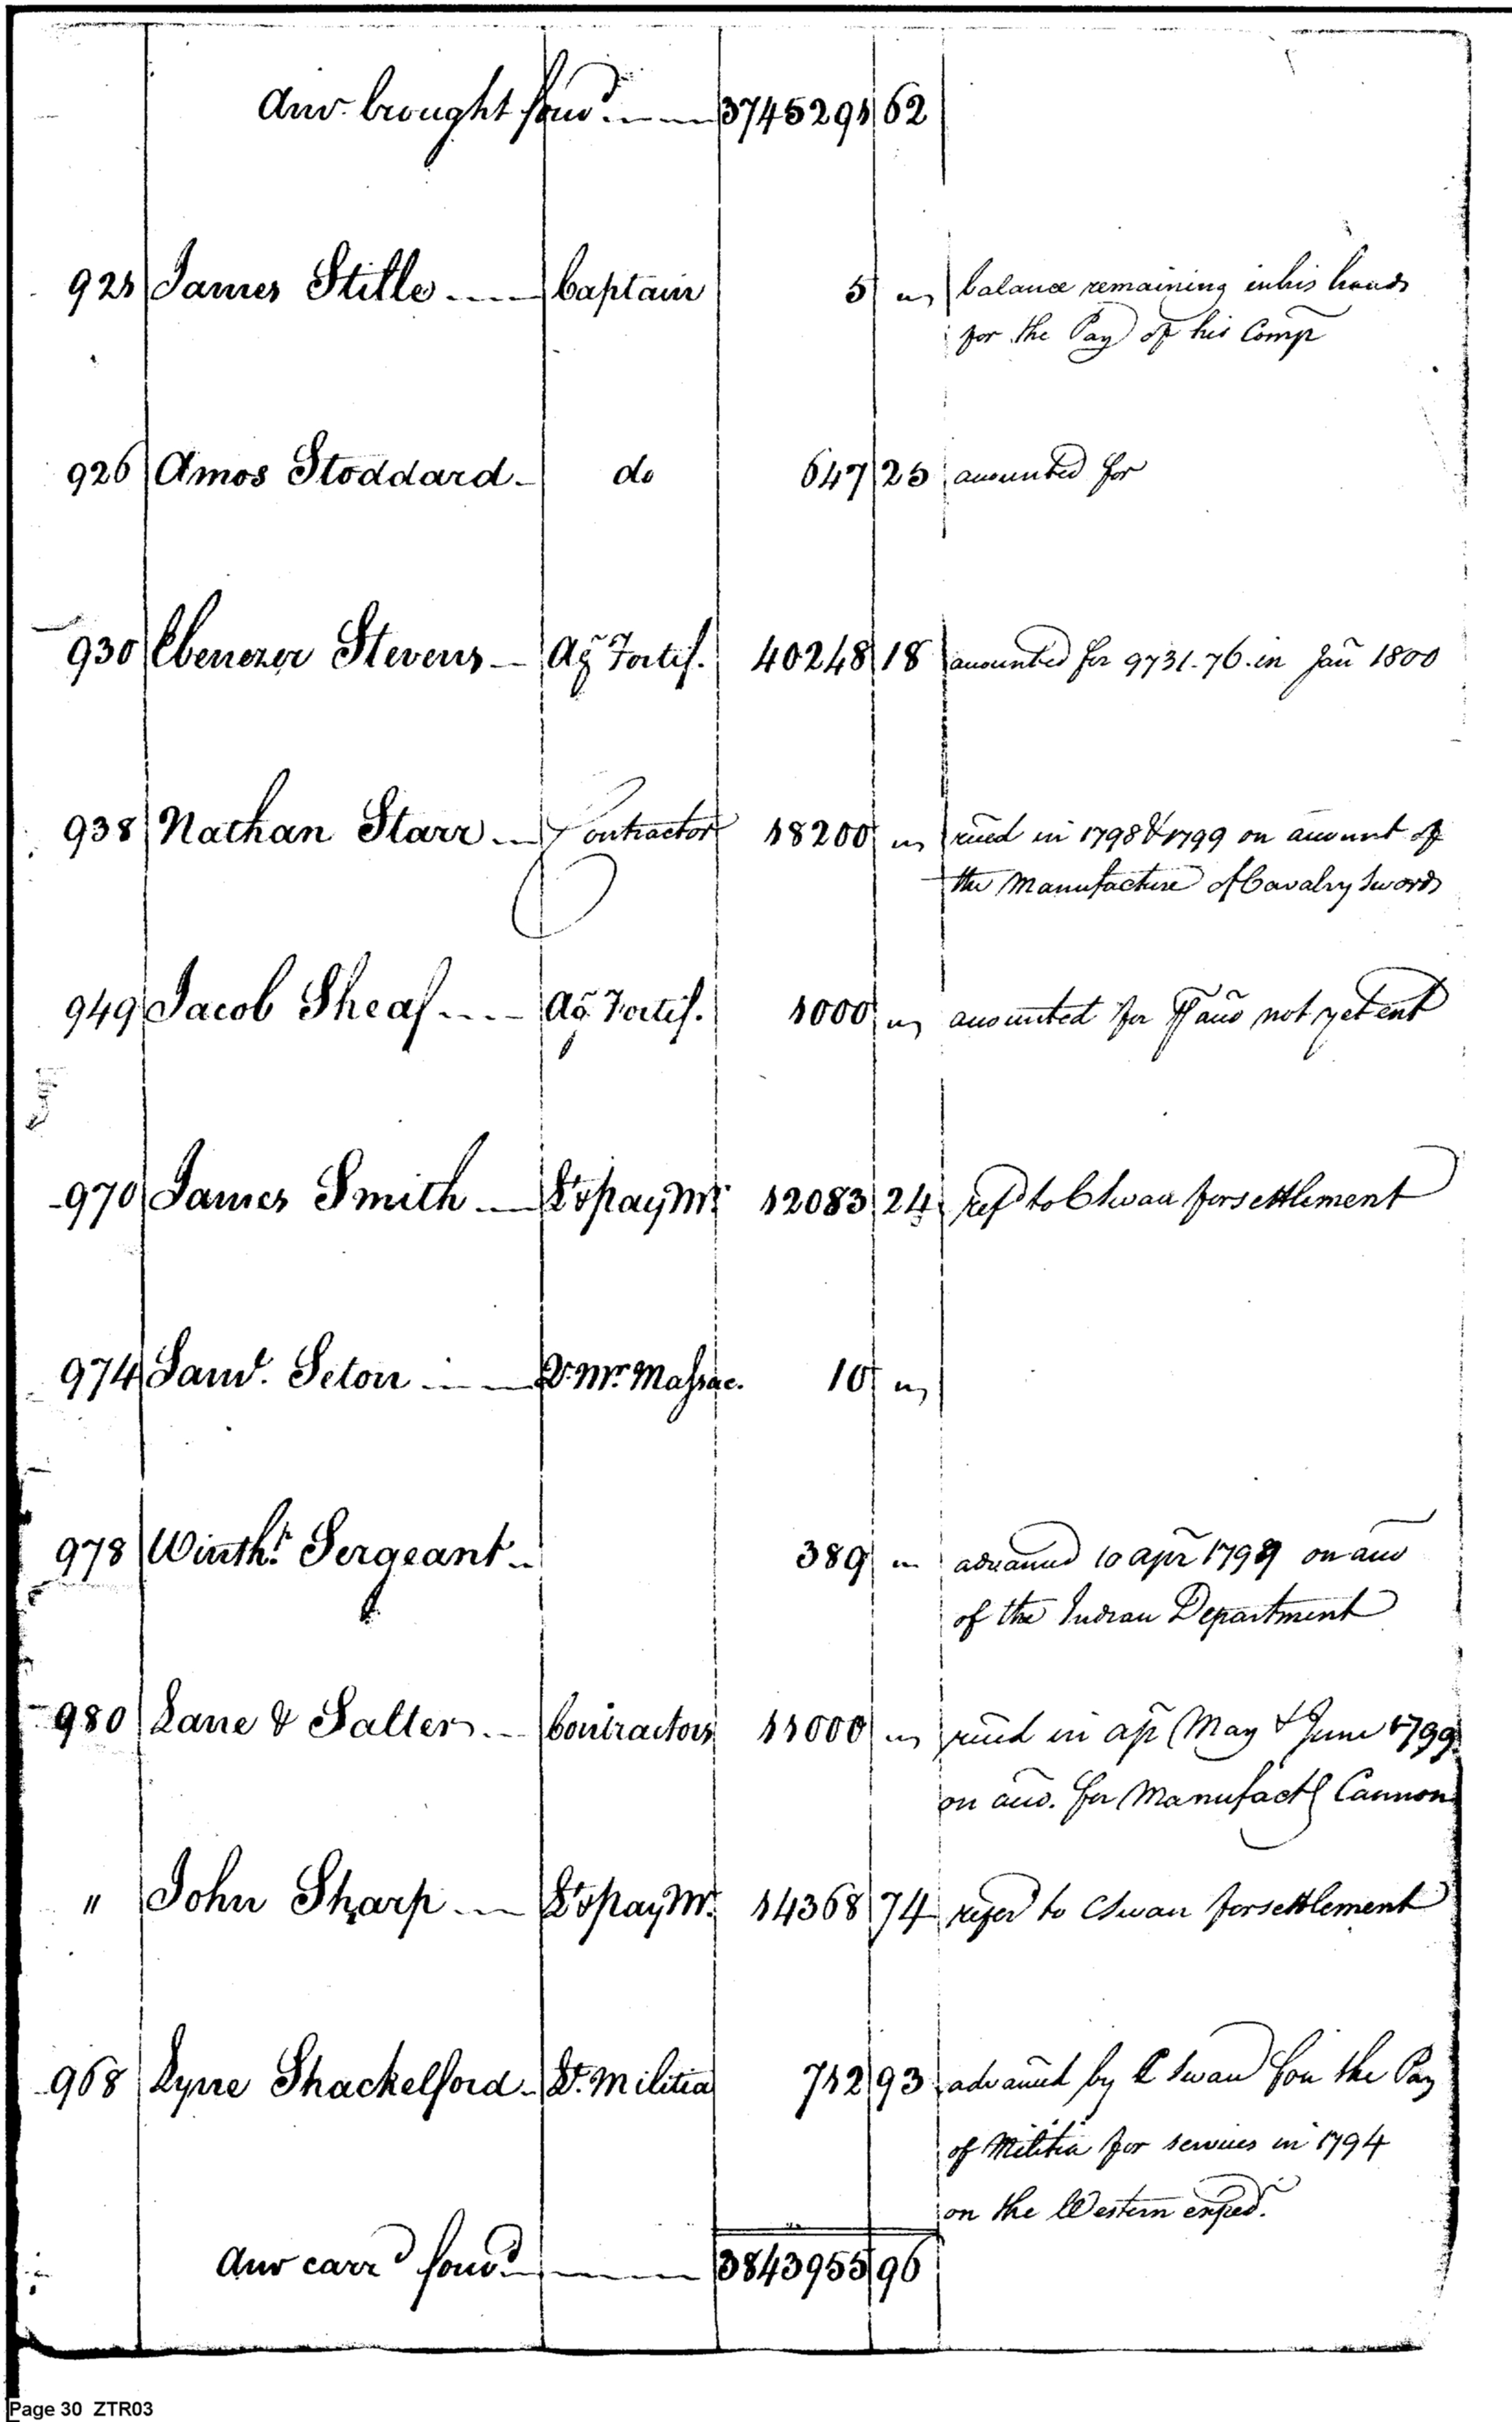 Amo. brought forwd. 3745291 62
921 James Stille Captain 5 " balance remaining in his hands
for the Pay of his Comp
926 Amos Stoddard do 647 25 accounted for
930 Ebenezer Stevens Ag Fortif. 40248 18 accounted for 9731.76 in Jan 1800
938 Nathan Starr Contractor 18200 " recd in 1798 & 1799 on account of
the Manufacture of Cavalry Swords
949 Jacob Sheaf Ag Fortif. 1000 " accounted for acco not yet ent
970 James Smith Lt & pay Mr. 12083 24 refd to C Swan for settlement
974 Saml. Seton Q. Mr. Massac. 10 "
978 Winthr. Sergeant 389 " advanced 10 apr 1799 on acco
of the Indian Department
980 Lane & Salter Contractors 11000 " recd in ap May & June 1799
on acco. for Manufactg Cannon
" John Sharp Lt & pay Mr. 14368 74 referd to C Swan for settlement
968 Lyne Shackelford Lt. Militia 712 93 advanced by C Swan for the Pay
of Militia for services in 1794
on the Western exped.
Amo carrd forwd. 3843955 96
Page 30 ZTR03